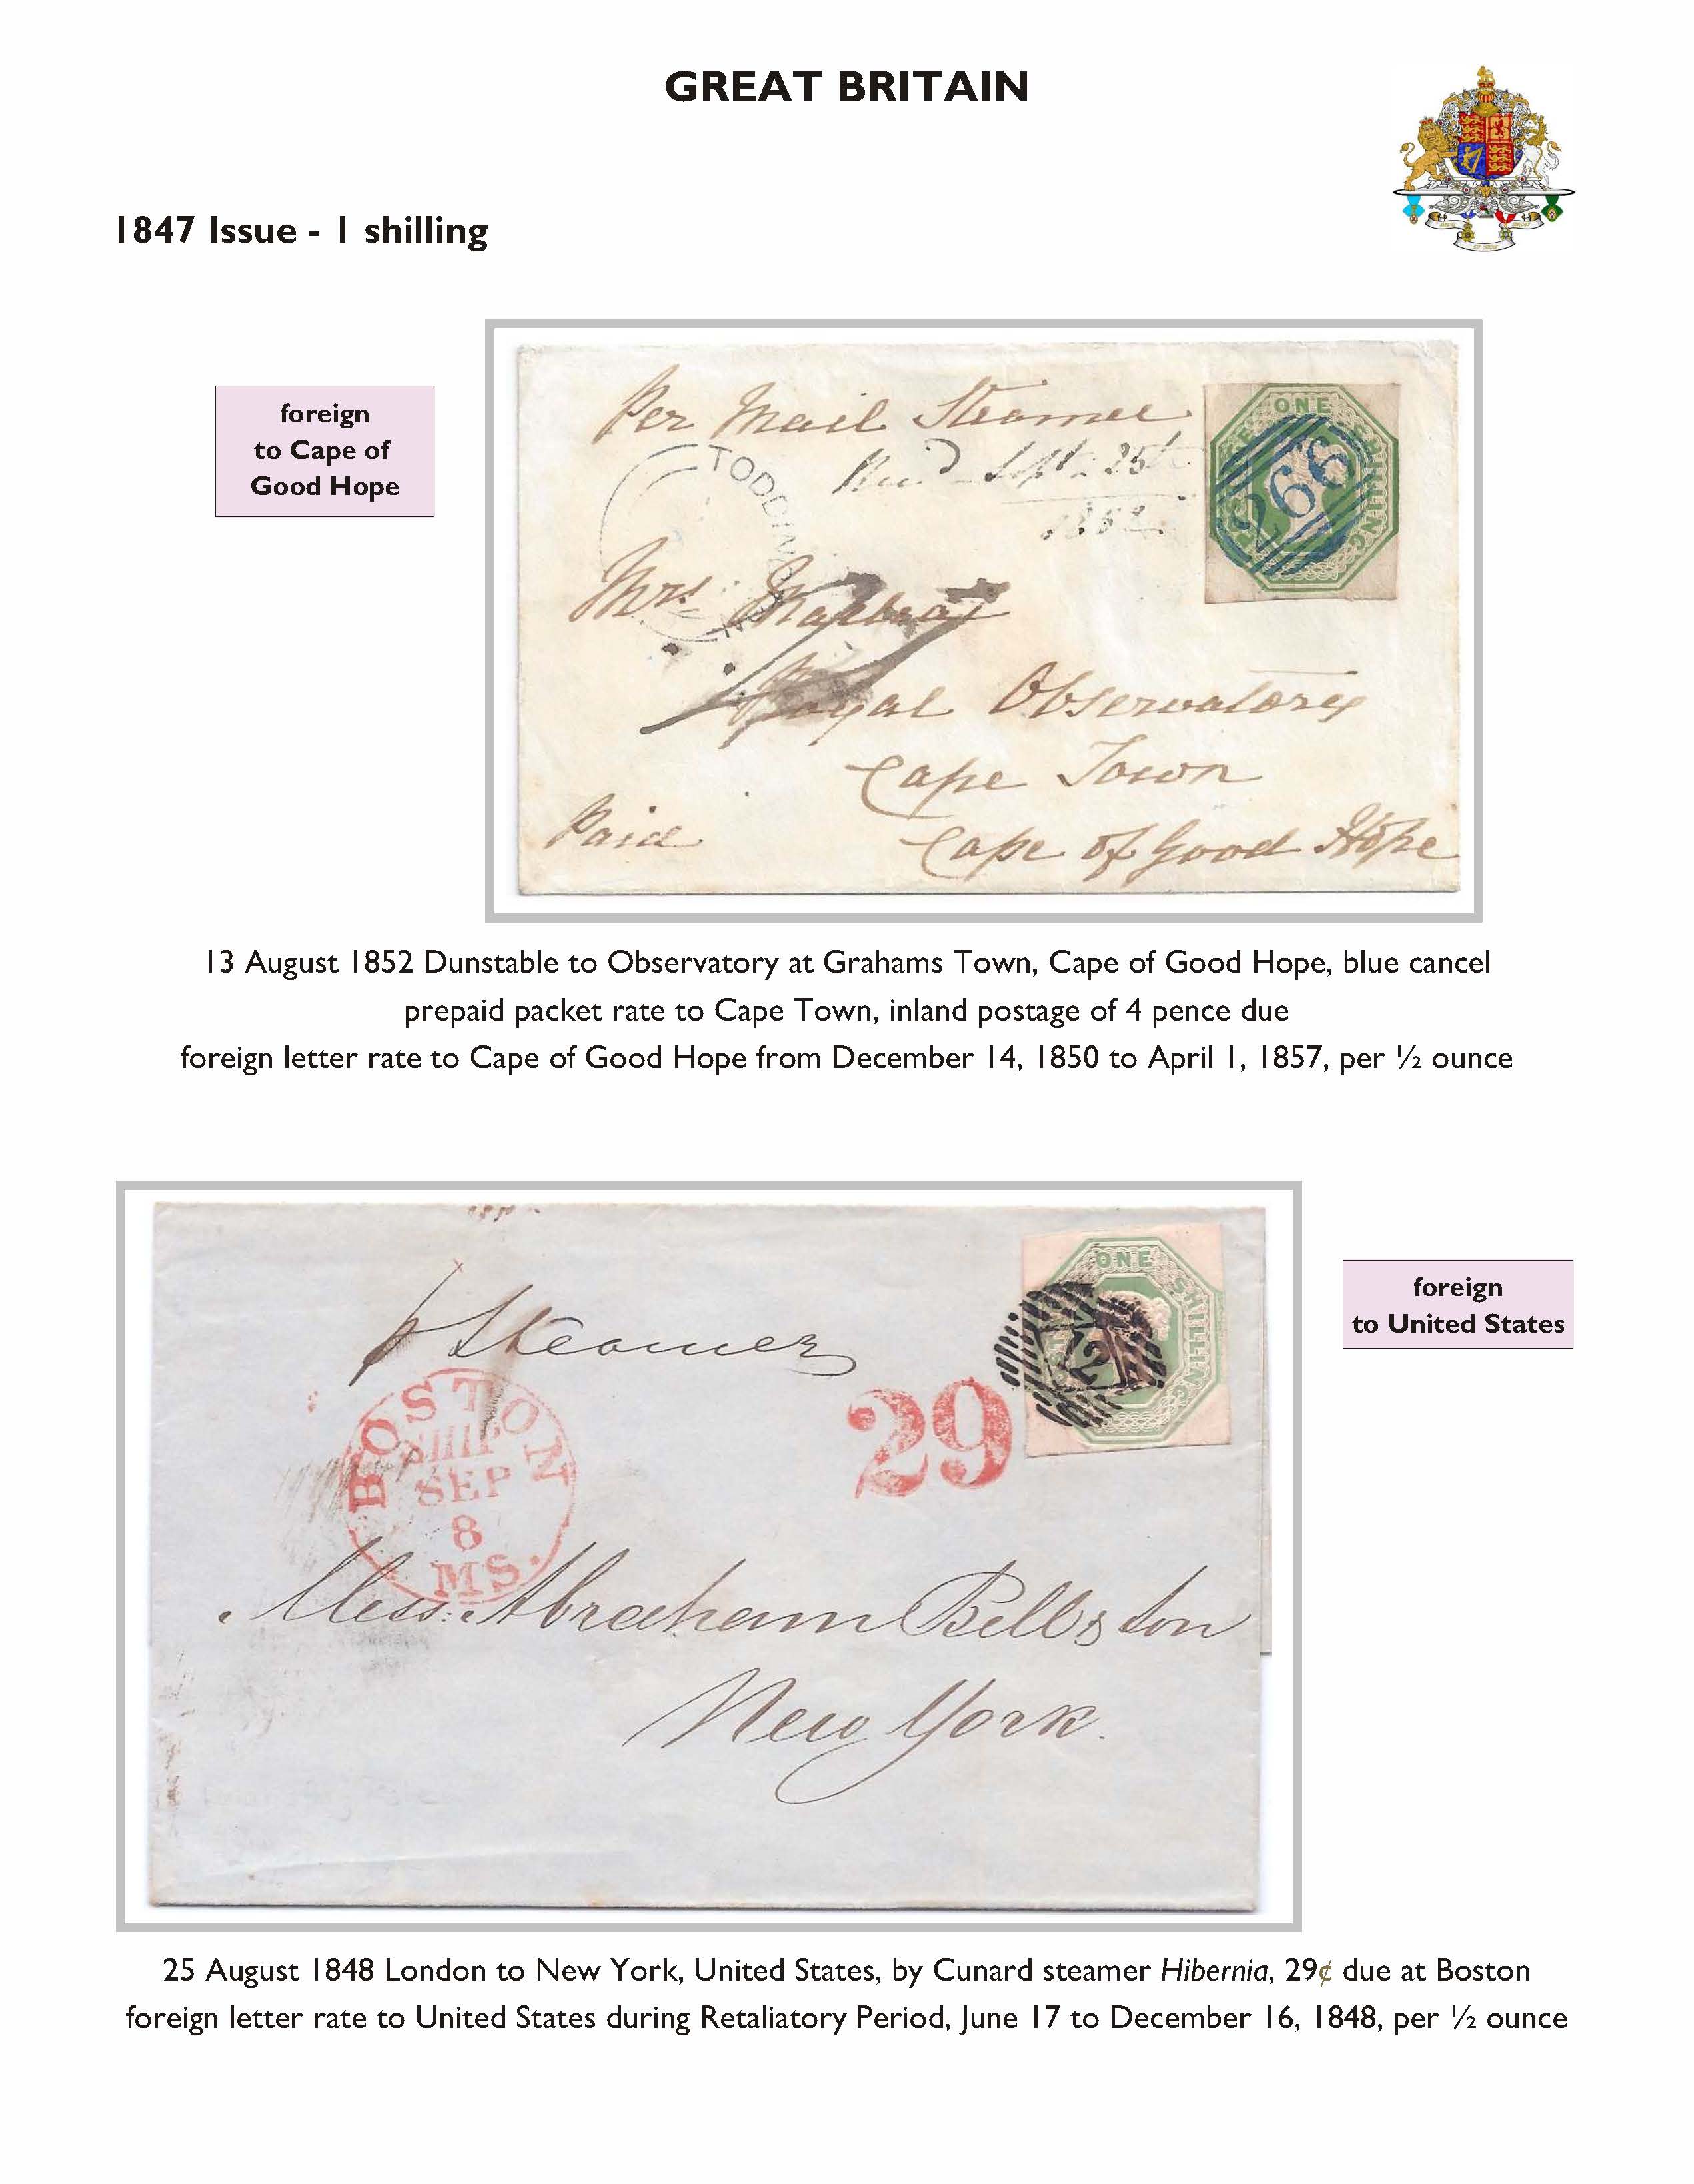 GREAT BRITAIN
1847 Issue - 1 shilling
foreign
to Cape of
Good Hope
Per Mail Steamer
Sept 25
1852
TODDIN
ONE
SHILLING
266
Mrs
Royal Observatory
Cape Town
Paid
Cape of Good Hope
13 August 1852 Dunstable to Observatory at Grahams Town, Cape of Good Hope, blue cancel
prepaid packet rate to Cape Town, inland postage of 4 pence due
foreign letter rate to Cape of Good Hope from December 14, 1850 to April 1, 1857, per ½ ounce
p Steamer
ONE SHILLING
BOSTON
SHIP
SEP
8
MS.
29
Mess. Abraham Bell & Son
New York.
foreign
to United States
25 August 1848 London to New York, United States, by Cunard steamer Hibernia, 29¢ due at Boston
foreign letter rate to United States during Retaliatory Period, June 17 to December 16, 1848, per ½ ounce